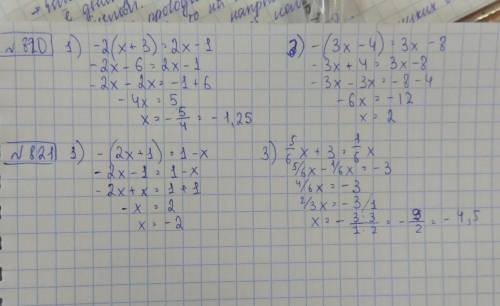 №820 1) -2(x+3)=2x-1
-2x-6=2x-1
-2x-2x=-1+6
-4x=5
x=-5/4=-1,25
2) -(3x-4)=3x-8
-3x+4=3x-8
-3x-3x=-8-4
-6x=-12
x=2
№821 1) -(2x+1)=1-x
-2x-1=1-x
-2x+x=1+1
-x=2
x=-2
3) 5/6x+3=1/6x
5/6x-1/6x=-3
4/6x=-3
2/3x=-3/1
x=-3·3/1·2=-9/2=-4,5